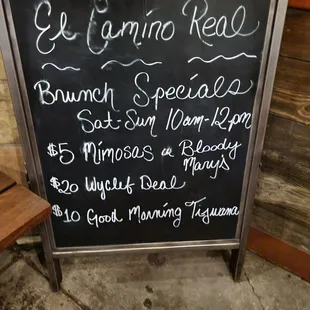 El Camino Real
Brunch Specials
Sat-Sun 10am-12pm
$5 Mimosas or Bloody
Mary's
$20 Wyclef Deal
$10 Good Morning Tijuana